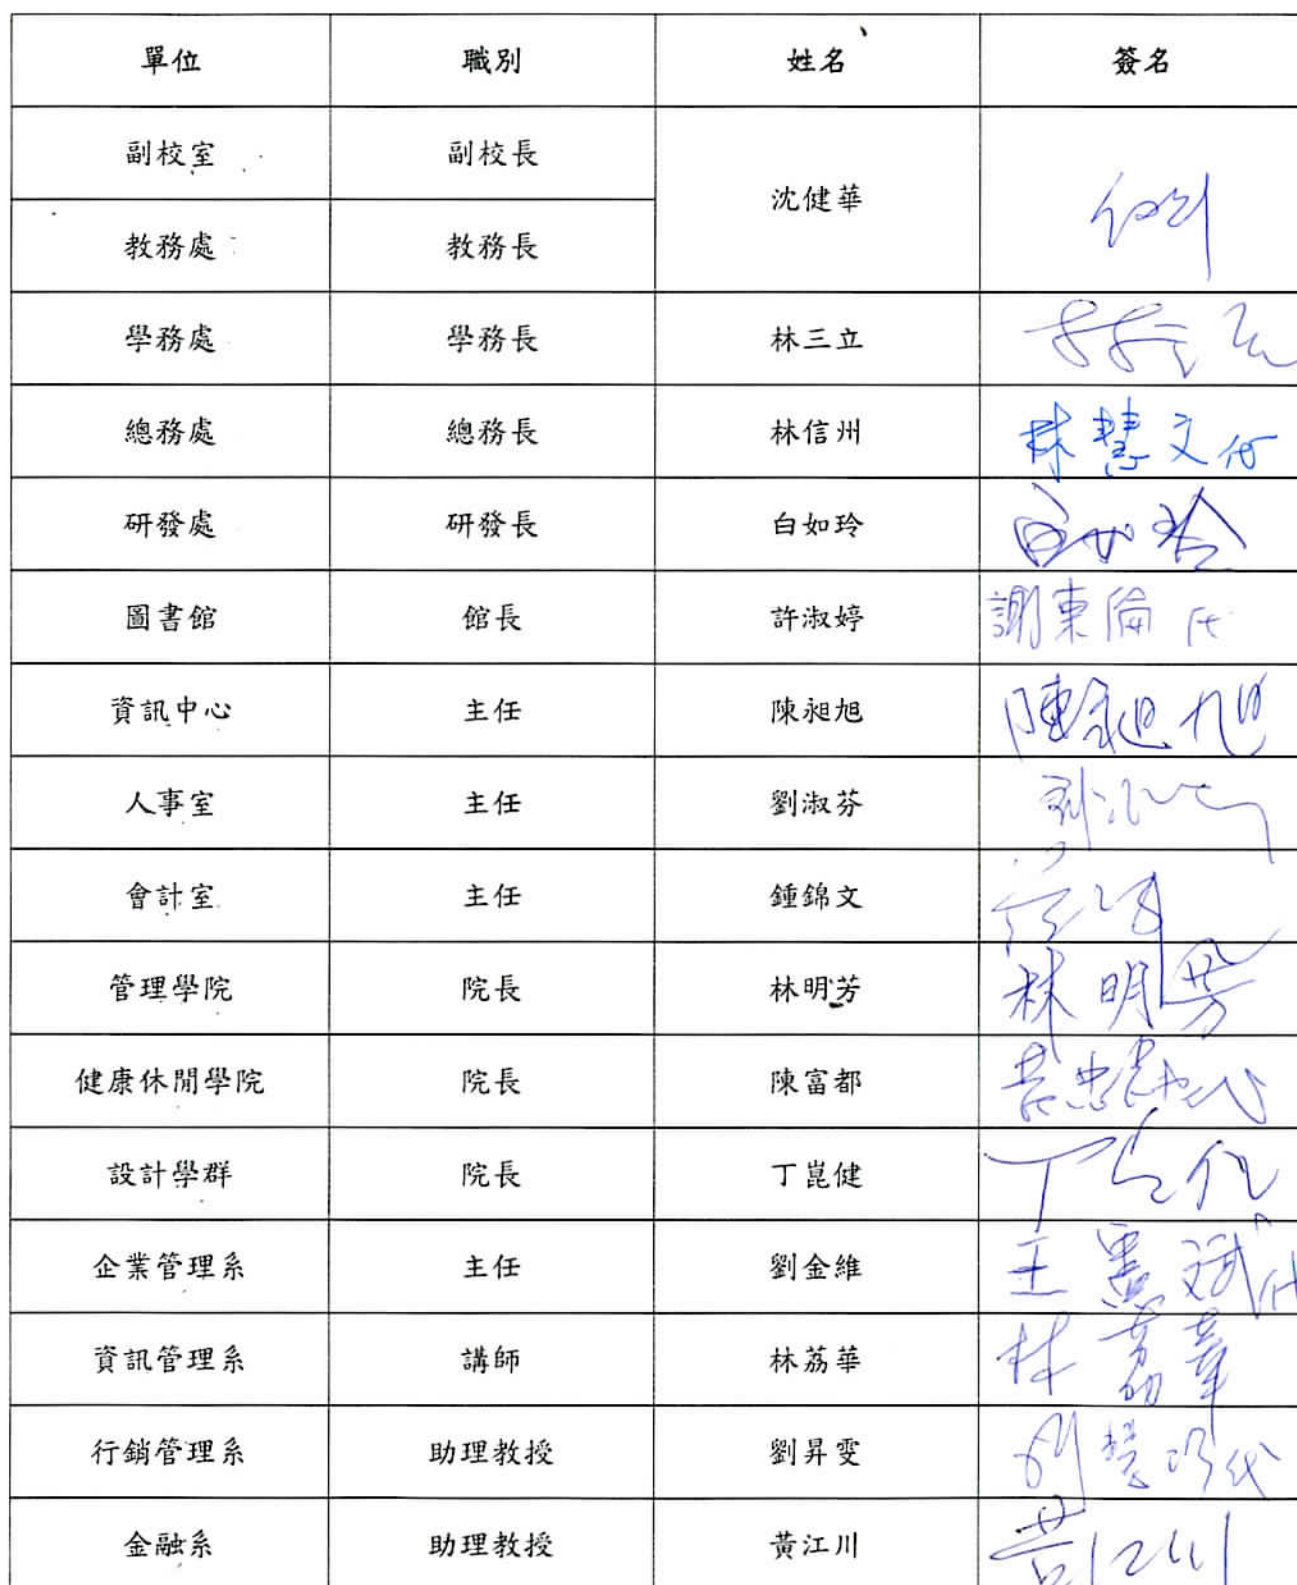 單位 職別 姓名 簽名
副校室 副校長 沈健華
教務處 教務長
學務處 學務長 林三立
總務處 總務長 林信州 林慧文代
研發處 研發長 白如玲 白如玲
圖書館 館長 許淑婷 謝東倫代
資訊中心 主任 陳昶旭 陳昶旭
人事室 主任 劉淑芬
會計室 主任 鍾錦文
管理學院 院長 林明芳 林明芳
健康休閒學院 院長 陳富都
設計學群 院長 丁崑健
企業管理系 主任 劉金維 王憲斌代
資訊管理系 講師 林荔華 林荔華
行銷管理系 助理教授 劉昇雯
金融系 助理教授 黃江川 黃江川